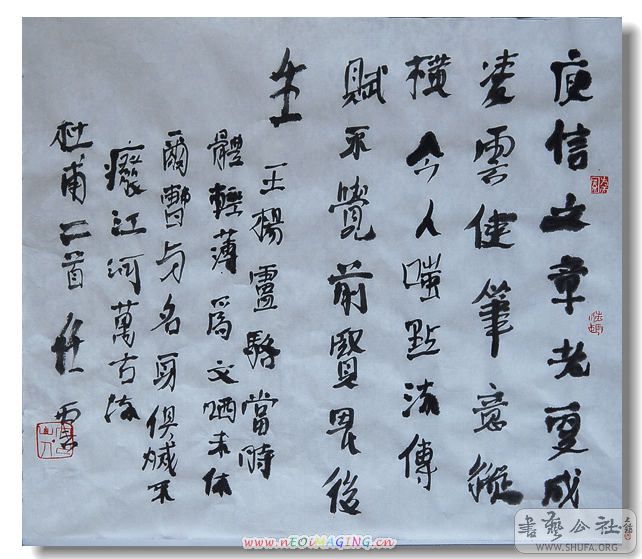 庾信文章老更成
凌雲健筆意縱
橫今人嗤點流傳
賦不覺前賢畏後
生
王楊盧駱當時
體輕薄爲文哂未休
爾曹与名身俱滅不
癈江河萬古流
杜甫二首
www.nEOiMAGiNG.cn
書藝公社
WWW.SHUFA.ORG